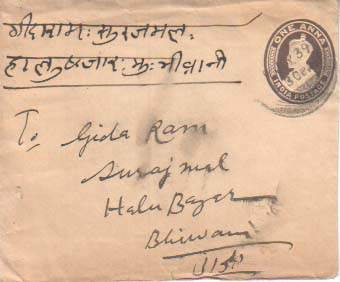 गीदाराम: सुरजमल:
हालु बजार: मु: भीवानी
ONE ANNA
INDIA POSTAGE
39
To Gida Ram
Surajmal
Halu Bazar
Bhiwani